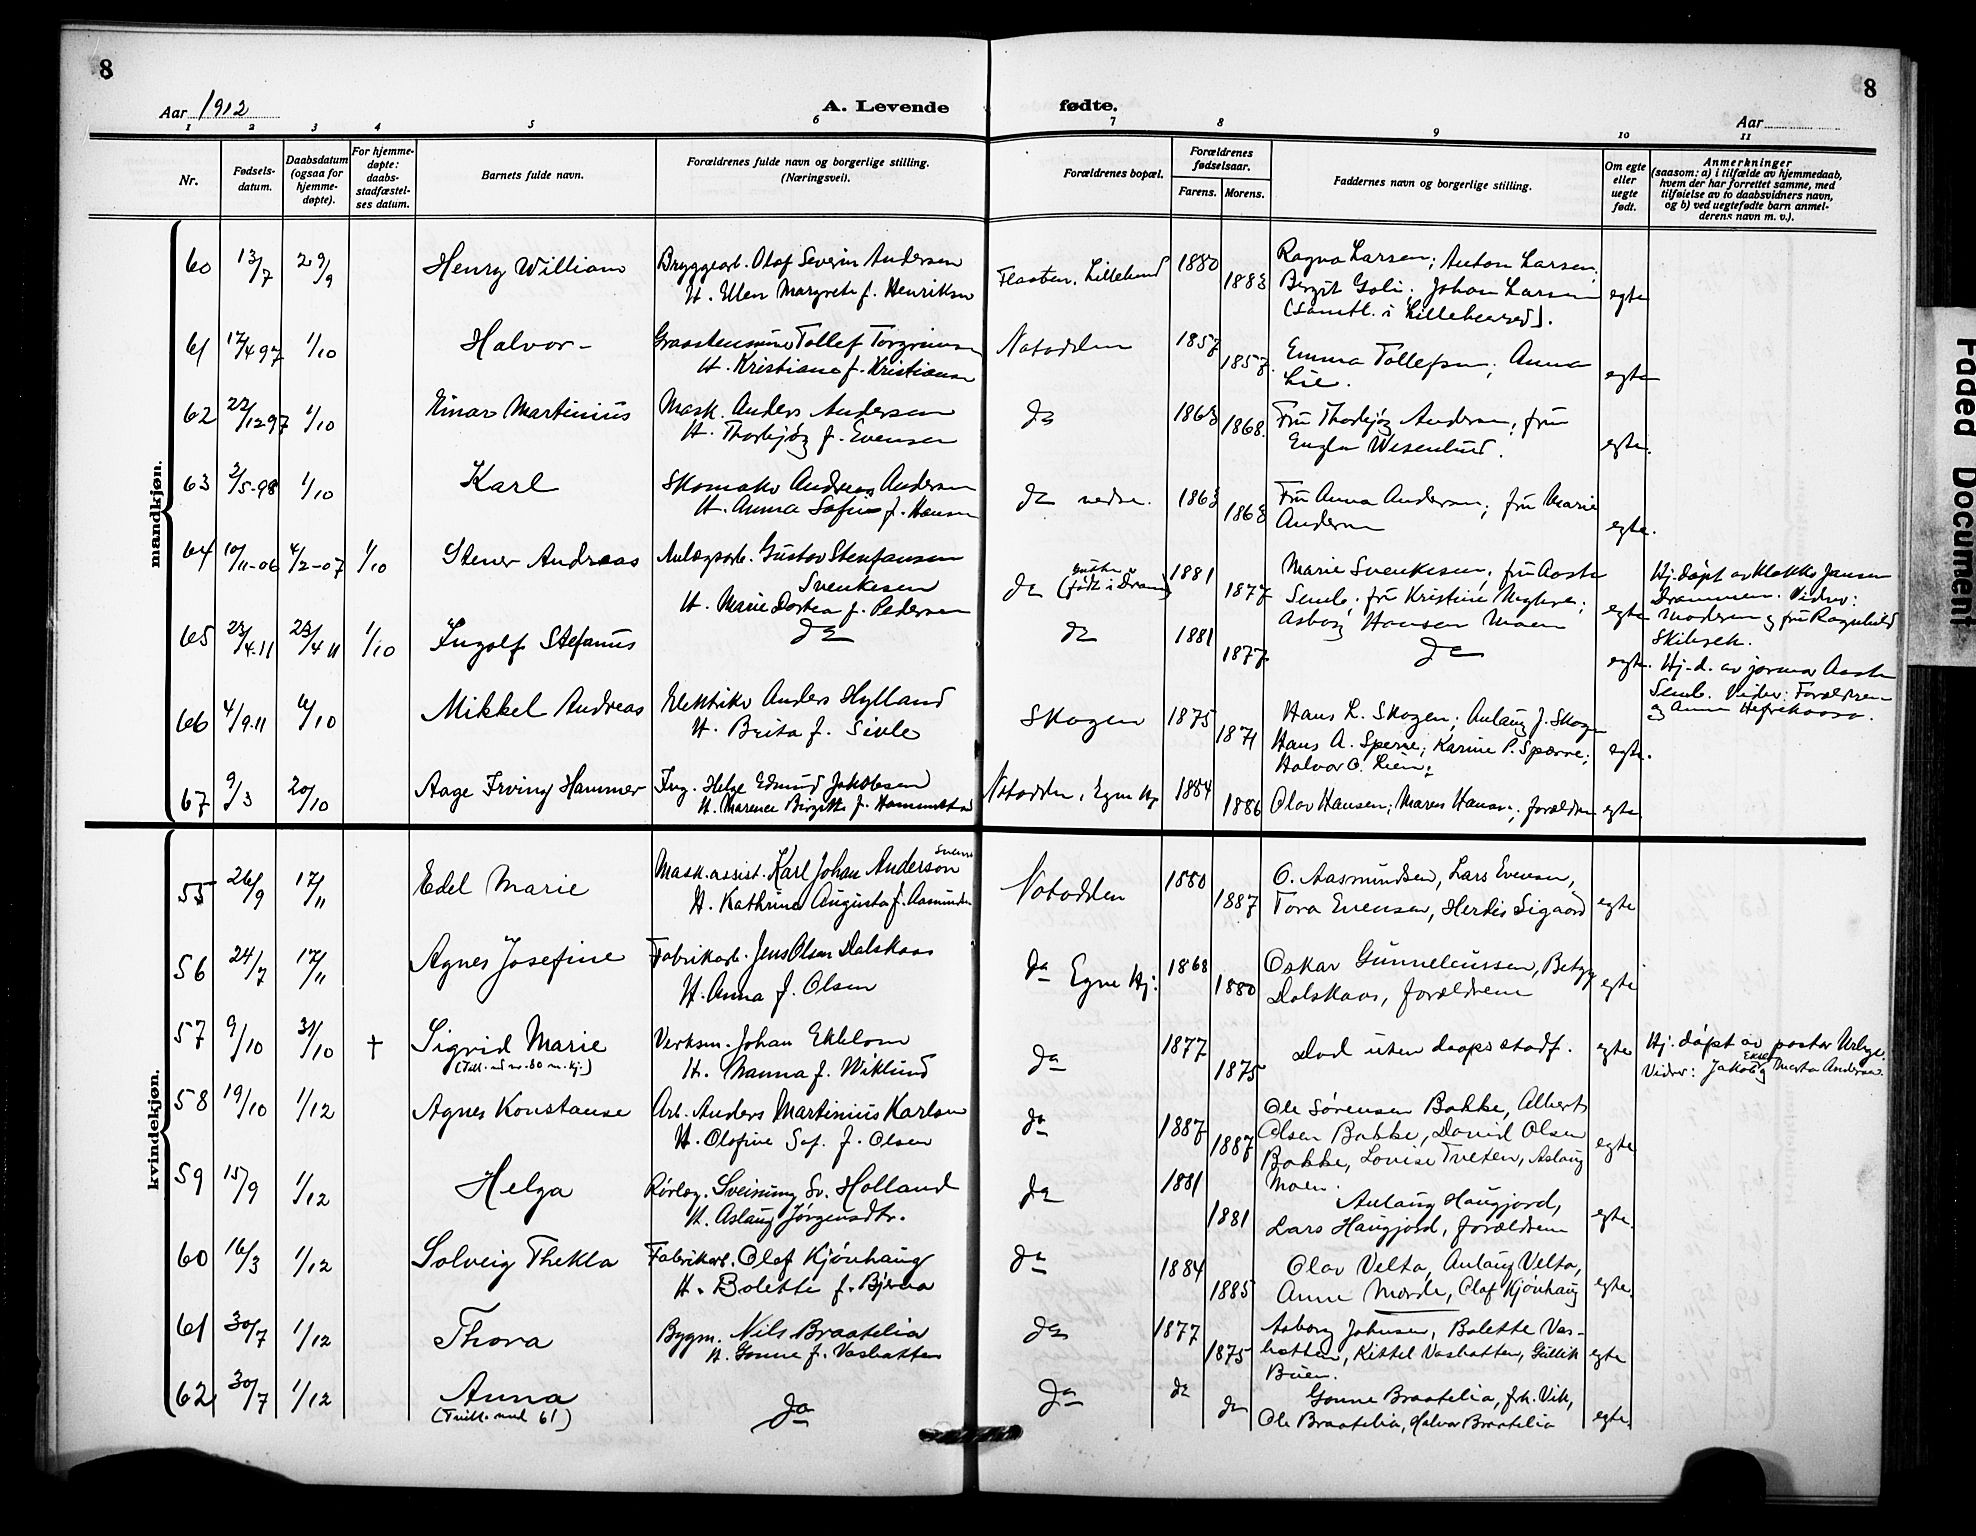 8
8
Aar 1912
A. Levende fødte.
Aar
1 2 3 4 5 6 7 8 9 10 11
Nr.
Fødsels-
datum.
Daabsdatum
(ogsaa for
hjemme-
døpte).
For hjemme-
døpte:
daabs-
stadfæstel-
ses datum.
Barnets fulde navn.
Forældrenes fulde navn og borgerlige stilling.
(Næringsvei).
Forældrenes bopæl.
Forældrenes
fødselsaar.
Farens. Morens.
Faddernes navn og borgerlige stilling.
Om egte
eller
uegte
født.
Anmerkninger
(saasom: a) i tilfælde av hjemmedaab,
hvem der har forrettet samme, med
tilføielse av to daabsvidners navn,
og b) ved uegtefødte barn anmel-
derens navn m. v.).
mandkjøn.
60 13/7 29/9 Henry William Bryggearb. Olaf Severin Andersen Flaaten, Lilleherred 1880 Ragna Larsen; Anton Larsen;
H. Ellen Margrete f. Henriksen 1883 Birgit Goli; Johan Larsen egte
(samtl. i Lilleherred).
61 17/4 97 1/10 Halvor - Tollef Torgrimsen Notodden 1857 Emma Tollefsen; Anna
H. Kristiane f. Kristiansen 1857. Lie. egte
62 22/12 97 1/10 Einar Martinius Mask. Anders Andersen do 1863 Fru Thorbjøg Andersen; fru
H. Thorbjøg f. Evensen 1868. egte.
63 2/5-98 1/10 Karl Skomaker Andreas Andersen do nedre. 1863 Fru Anna Andersen; fru Marie
H. Anna Sofie f. Hansen 1863 Andersen egte.
64 10/11-06 4/2-07 1/10 Stener Andreas Anlægsarb. Gustav Stenfansen do (født i Dramn) 1881 Marie Svenkesen; fru Aaste
Svenkesen
H. Marie Dortea f. Pedersen 1877 Semb. fru Kristine egte
Asborg Hansen Moen
Hj. døpt av Klokker Jansen
Drammen. Vidner:
Moderen og fru Ragnhild
65 23/4-11 23/4 11 1/10 Ingolf Stefanus do do 1881 1877 do egte.
Hj.-d. av jormor Aaste
Semb. Vidner: Forældrene
og Anne
66 4/9-11 6/10 Mikkel Andreas Elektriker Anders Hylland Skogen 1875 Hans L. Skogen; Aslaug J. Skogen
H. Brita f. Sivle 1871 Hans A. Sperre; Karine P. Spærre; egte.
Halvor O. Lien;
67 9/3 20/10 Aage Irving Hammer Ing. Helge Edmund Jakobsen Notodden, Egne Hj. 1884
H. Marence Birgitte f. Hammerstad 1886 Olav Hansen; Maren Hansen; forældrene egte
kvindekjøn.
55 26/9 17/11 Edel Marie Mask.assist. Karl Johan Anderson Svensk Notodden 1880 O. Aasmundsen, Lars Evensen,
H. Kathrine Augusta f. Aasmundsen 1887 Tora Evensen, Herdis Sigaard egte
56 24/7 17/11 Agnes Josefine Fabrikarb. Jens Olsen Dalskaas do Egne Hj: 1868 Oskar Gunneleussen, Betzy
H. Anna f. Olsen 1880 Dalskaas, forældrene egte
57 9/10 31/10 † Sigrid Marie Verksm. Johan Ekblom do 1877 Død uten daapsstadf. egte
H. Nanna f. Wiklund 1875
Hj. døpt av pastor
Vidner: Jakob Ekblom og Marta Andersen.
58 19/10 1/12 Agnes Konstanse Arb. Anders Martinius Karlsen do 1887 Ole Sørensen Bakke, Albert
H. Olofine Sof. f. Olsen 1887 Olsen Bakke, David Olsen egte
Bakke, Louise Tveten, Aslaug
Moen.
59 15/9 1/12 Helga Rørlæg. Sveinung Sv. Holland do 1881 Aslaug Haugjord,
H. Aslaug Jørgensdtr. 1881 Lars Haugjord, forældrene egte.
60 16/3 1/12 Solveig Thekla Fabrikarb. Olaf Kjønhaug do 1884 Olav Velta, Aslaug Velta,
H. Bolette f. Bjerva 1885 Anne Morde, Olaf Kjønhaug egte.
61 30/7 1/12 Thora Bygm. Nils Braatelia do 1877 Aaborg Johnsen, Bolette Vas-
H. Gonne f. Vashatten 1875 hatten, Kittel Vashatten, Gullik egte
Buen.
62 30/7 1/12 Anna do do do do Gonne Braatelia, frk. Vik,
(Tvill. med 61) Ole Braatelia, Halvor Braatelia egte.
Faded Document